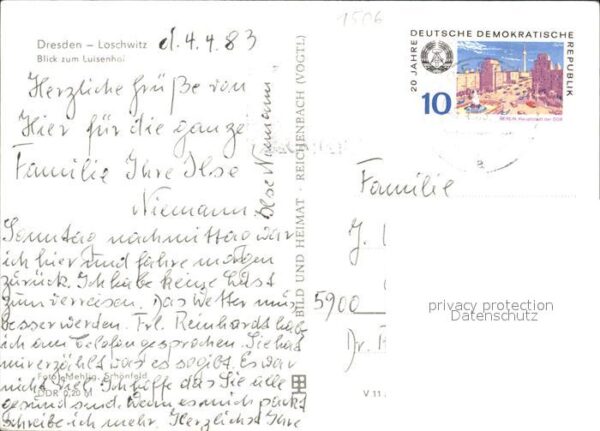 1506
Dresden – Loschwitz d. 4.4.83
Blick zum Luisenhof
Herzliche Grüße von
Hier für die ganze
Familie Ihre Ilse
Niemann.
Sonntag nachmittag war
ich hier und fahre morgen
zurück. Ich habe keine Lust
zum verreisen. Das Wetter muß
besser werden. Frl. Reinhardt hab
ich am Telefon gesprochen. Sie hat
mir erzählt was es so gibt. Es war
nicht viel. Ich hoffe das Sie alle
gesund sind. Wenn es mich packt
schreibe ich mehr. Herzlichst Ihre
Ilse Niemann
Foto: Mehlig, Schönfeld
DDR 0,20 M
BILD UND HEIMAT · REICHENBACH (VOGTL)
V 11
20 JAHRE DEUTSCHE DEMOKRATISCHE REPUBLIK
10
BERLIN Hauptstadt der DDR
Familie
J.
5900
Dr.
privacy protection
Datenschutz